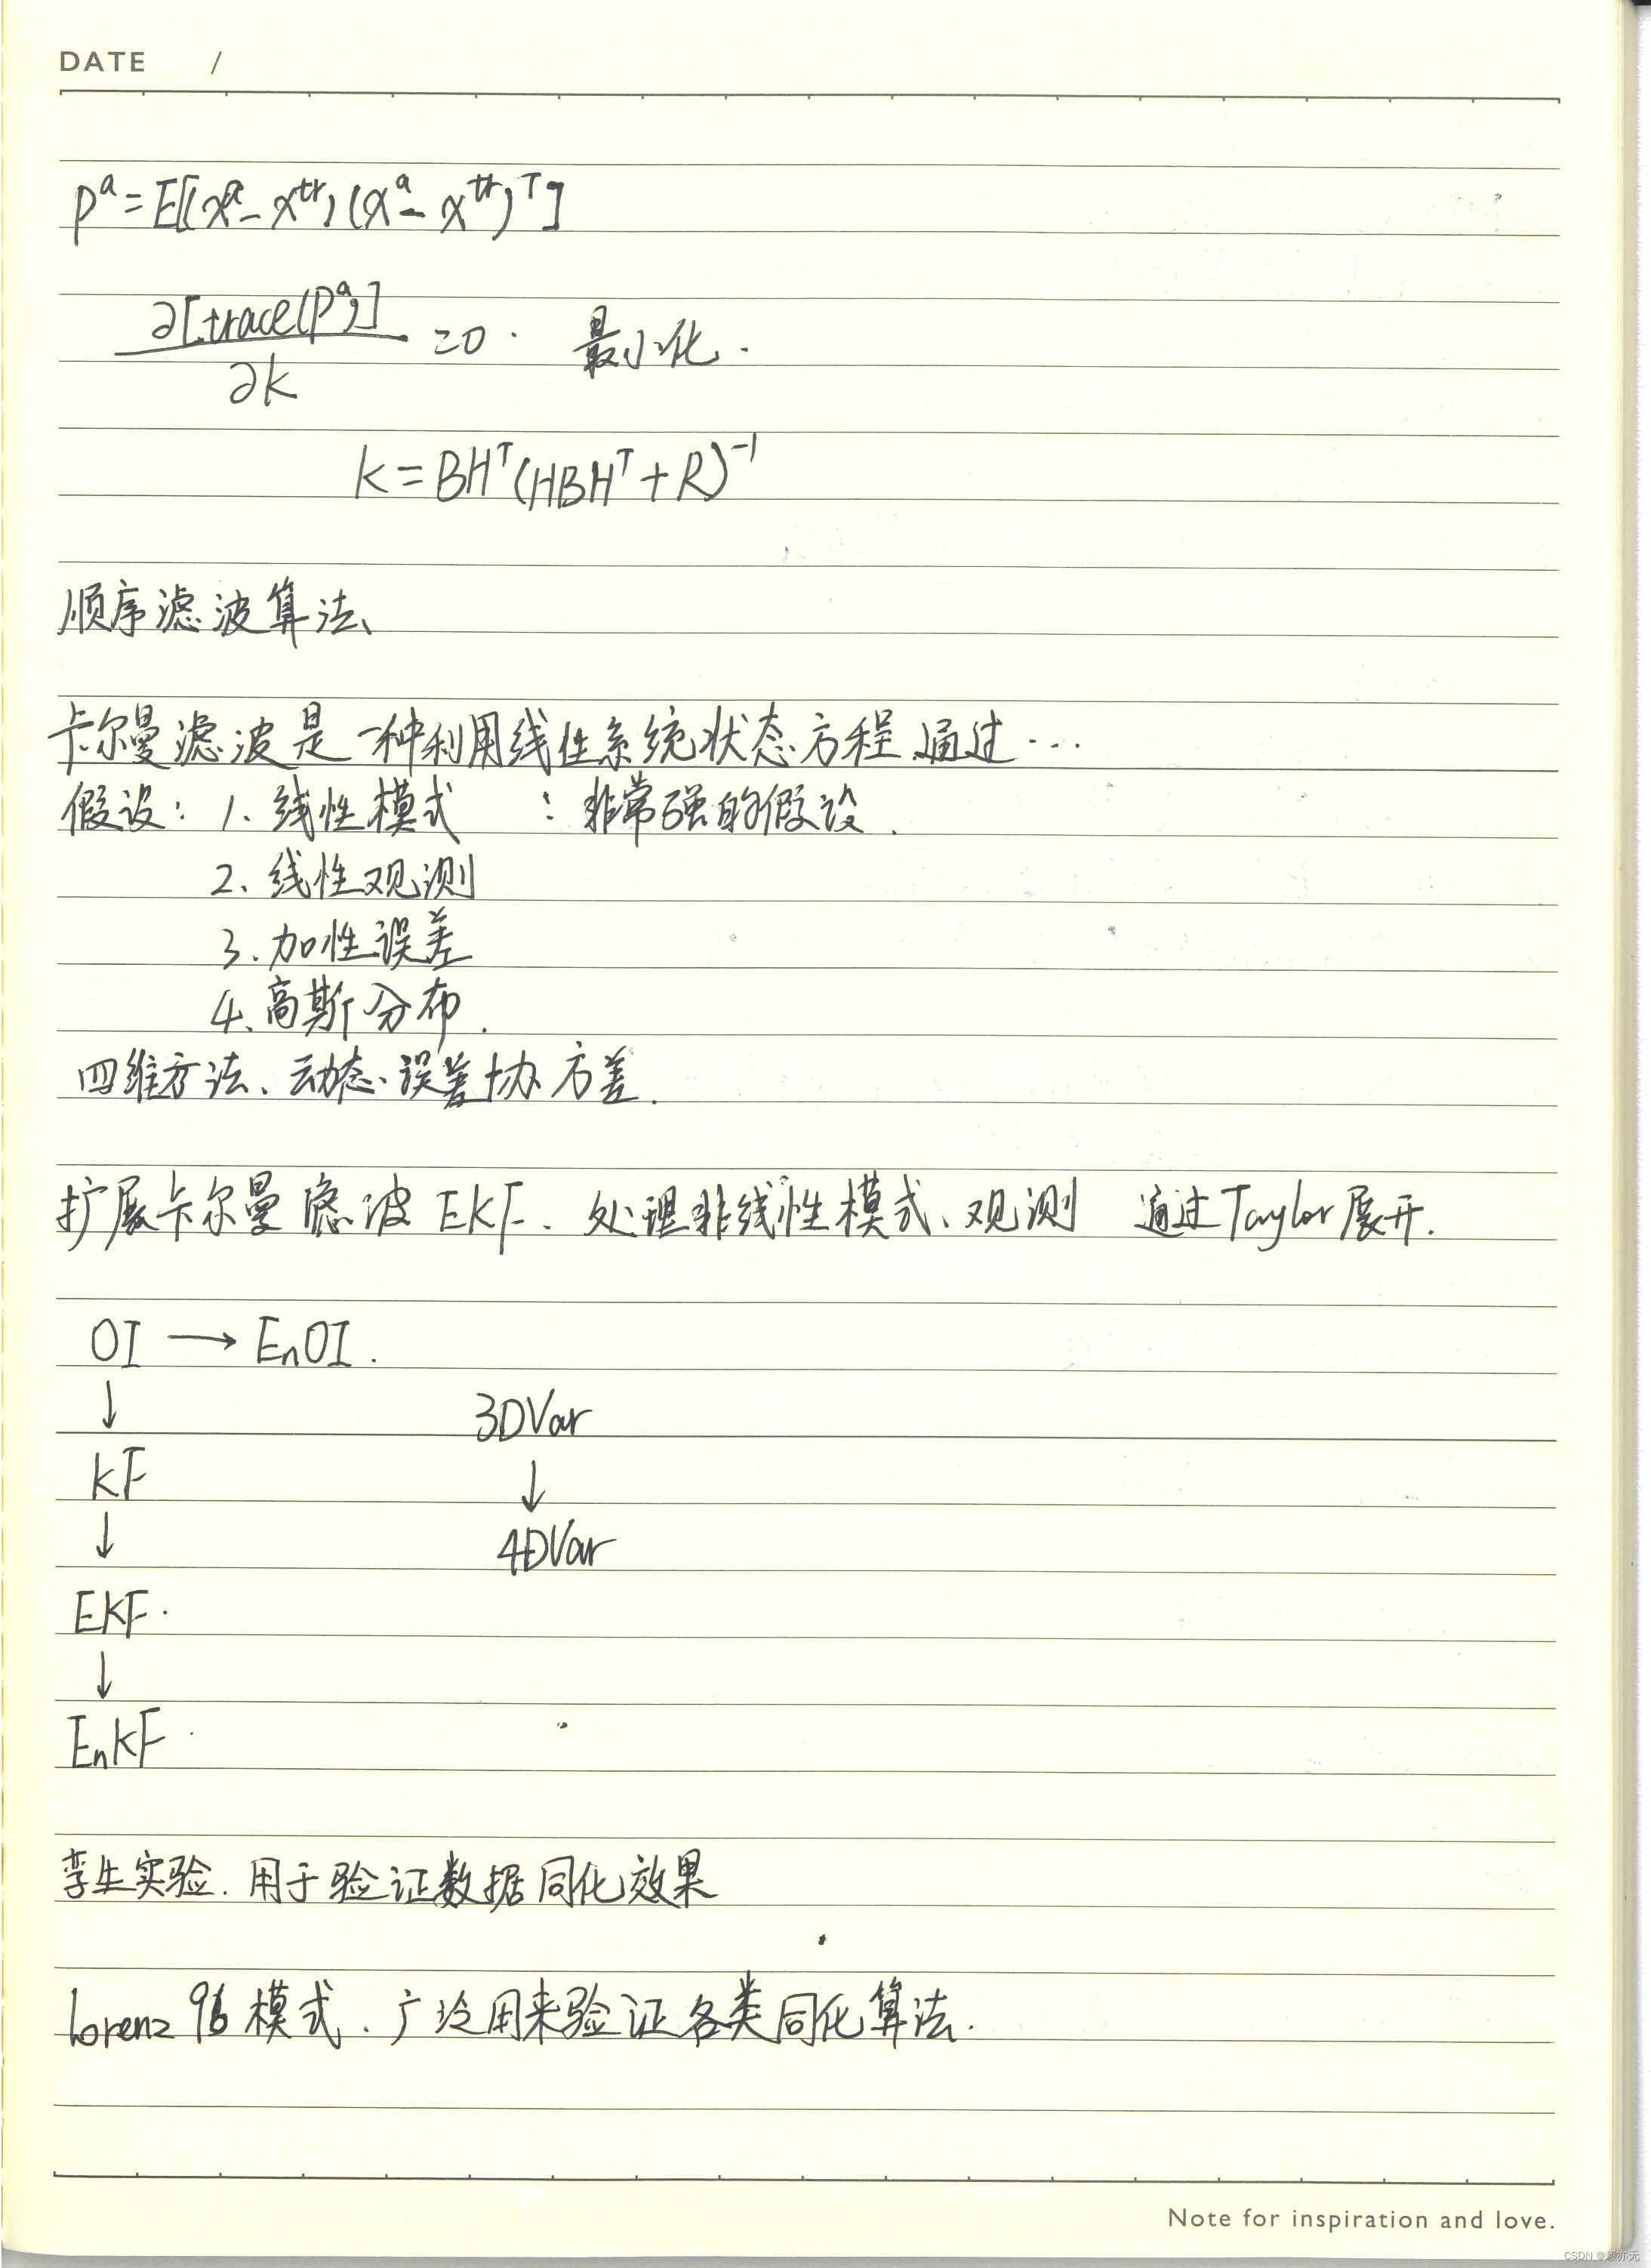 DATE /
P^a = E[(x^a - x^tr)(x^a - x^tr)^T]
∂[trace(P^a)]
/ ∂K = 0. 最小化.
K = BH^T(HBH^T + R)^-1
顺序滤波算法、
卡尔曼滤波是一种利用线性系统状态方程,通过...
假设: 1. 线性模式 : 非常强的假设.
2、线性观测
3. 加性误差
4、高斯分布.
四维方法、动态、误差协方差.
扩展卡尔曼滤波 EKF. 处理非线性模式、观测 通过Taylor展开.
OI → EnOI.
↓ 3DVar
KF ↓
↓ 4DVar
EKF.
↓
EnKF
孪生实验. 用于验证数据同化效果
lorenz 96 模式. 广泛用来验证各类同化算法.
Note for inspiration and love.
CSDN @颜亦无